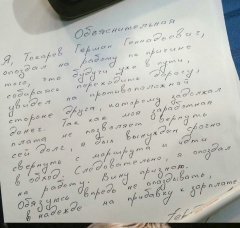 Объяснительная
Я, Токарев Герман Геннадьевич,
опоздал на работу по причине
того, что будучи уже в пути,
собираясь переходить дорогу,
увидел на противоположной
стороне друга, которому задолжал
денег. Так как моя заработная
плата не позволяет мне отдать
сей долг, я был вынужден срочно
свернуть с маршрута и идти
в обход. Следовательно, я опоздал
на работу. Вину признаю.
Обязуюсь впредь не опаздывать,
в надежде на прибавку к зарплате